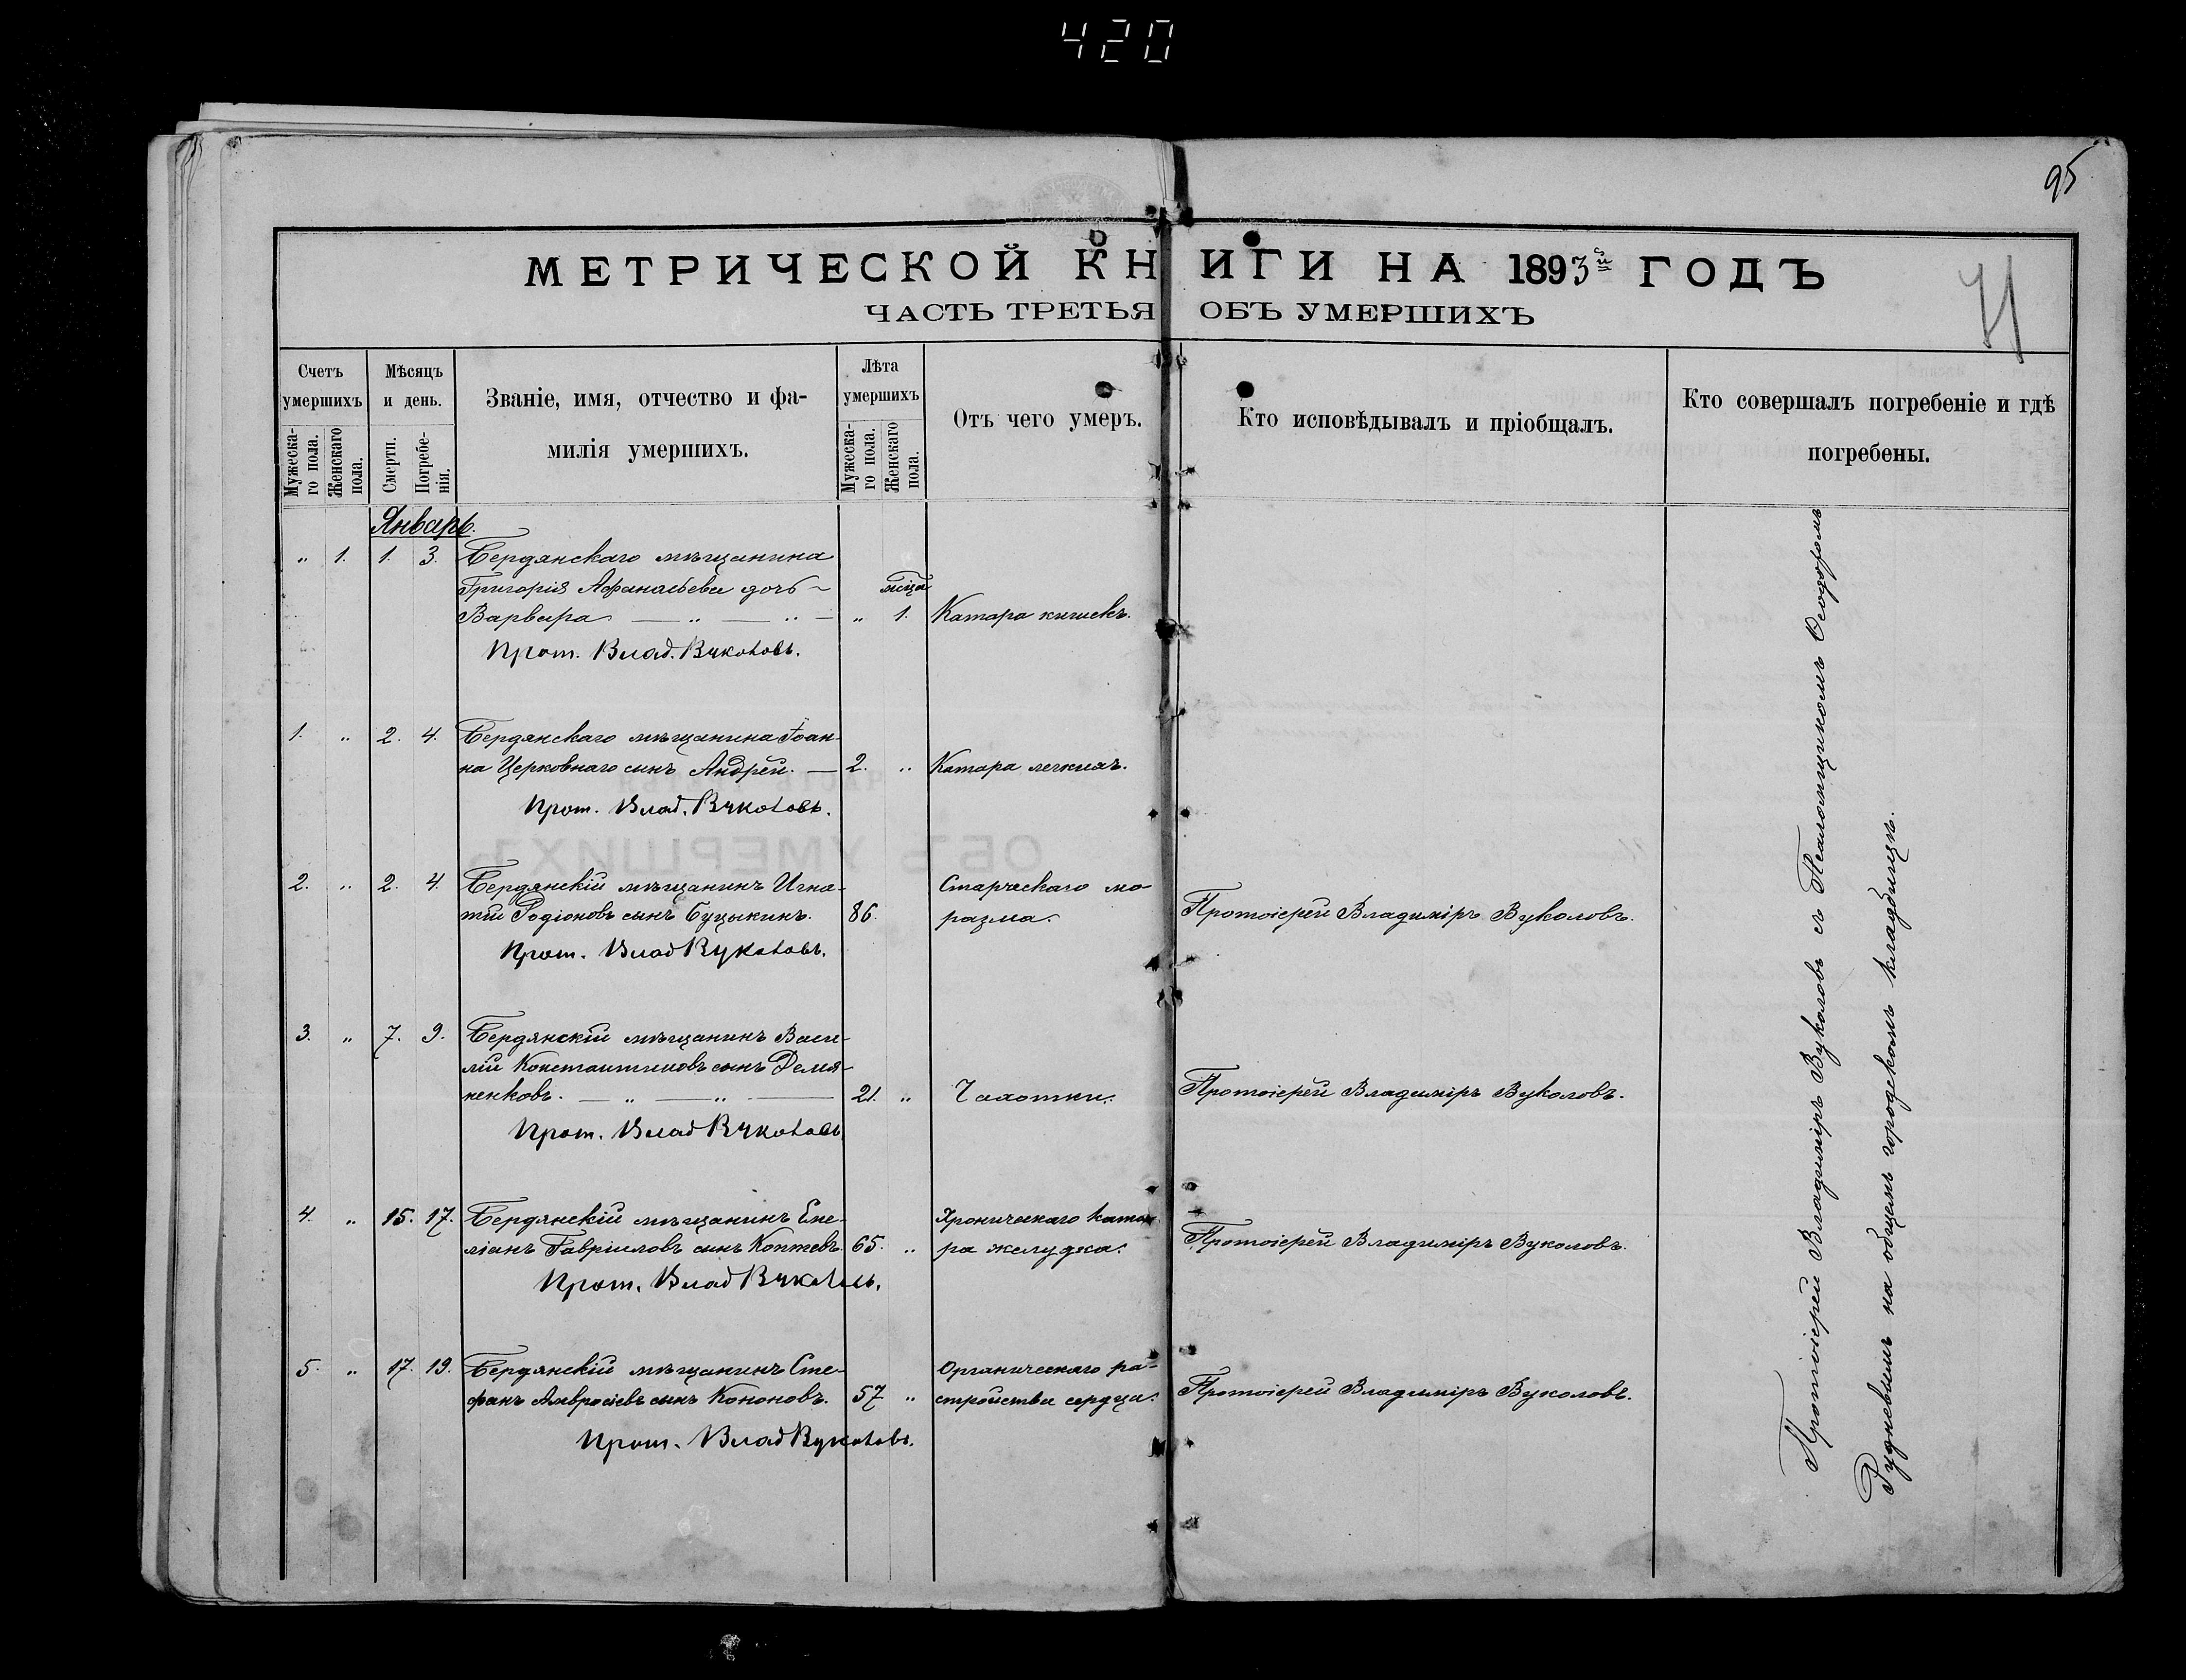 420
95
МЕТРИЧЕСКОЙ КНИГИ НА 1893й ГОДЪ
ЧАСТЬ ТРЕТЬЯ ОБЪ УМЕРШИХЪ
Счетъ умершихъ
Мужеска-го пола.
Женскаго пола.
Мѣсяцъ и день.
Смерти.
Погребе-нія.
Званіе, имя, отчество и фа-
милія умершихъ.
Лѣта умершихъ
Мужеска-го пола.
Женскаго пола.
Отъ чего умеръ.
Кто исповѣдывалъ и пріобщалъ.
Кто совершалъ погребеніе и гдѣ
погребены.
Январь.
„ 1. 1. 3. Бердянскаго мѣщанина
Григорія Афанасьева дочь
Варвара „ 1. Катара кишекъ.
Прот. Влад. Вуколовъ.
1. „ 2. 4. Бердянскаго мѣщанина Іоан-
на Церковнаго сынъ Андрей. 2. „ Катара легкихъ.
Прот. Влад. Вуколовъ.
2. „ 2. 4. Бердянскій мѣщанинъ Игна- Старческаго ма-
тій Родіоновъ сынъ Буцыкинъ. 86. разма. Протоіерей Владиміръ Вуколовъ.
Прот. Влад Вуколовъ.
3. „ 7. 9. Бердянскій мѣщанинъ Васи-
лій Константиновъ сынъ Демя-
ненковъ. 21. „ Чахотки. Протоіерей Владиміръ Вуколовъ.
Прот. Влад Вуколовъ
4. „ 15. 17. Бердянскій мѣщанинъ Еме- Хроническаго ката-
ліанъ Гавріиловъ сынъ Коптевъ 65. „ ра желудка. Протоіерей Владиміръ Вуколовъ.
Прот. Влад Вуколовъ.
5. „ 17. 19. Бердянскій мѣщанинъ Сте- Органическаго ра-
фанъ Амвросіевъ сынъ Кононовъ. 57 „ стройства сердца. Протоіерей Владиміръ Вуколовъ.
Прот. Влад Вуколовъ.
Протоіерей Владиміръ Вуколовъ съ Псаломщикомъ Ѳеодоромъ
Рудневымъ на общемъ городскомъ кладбищѣ.